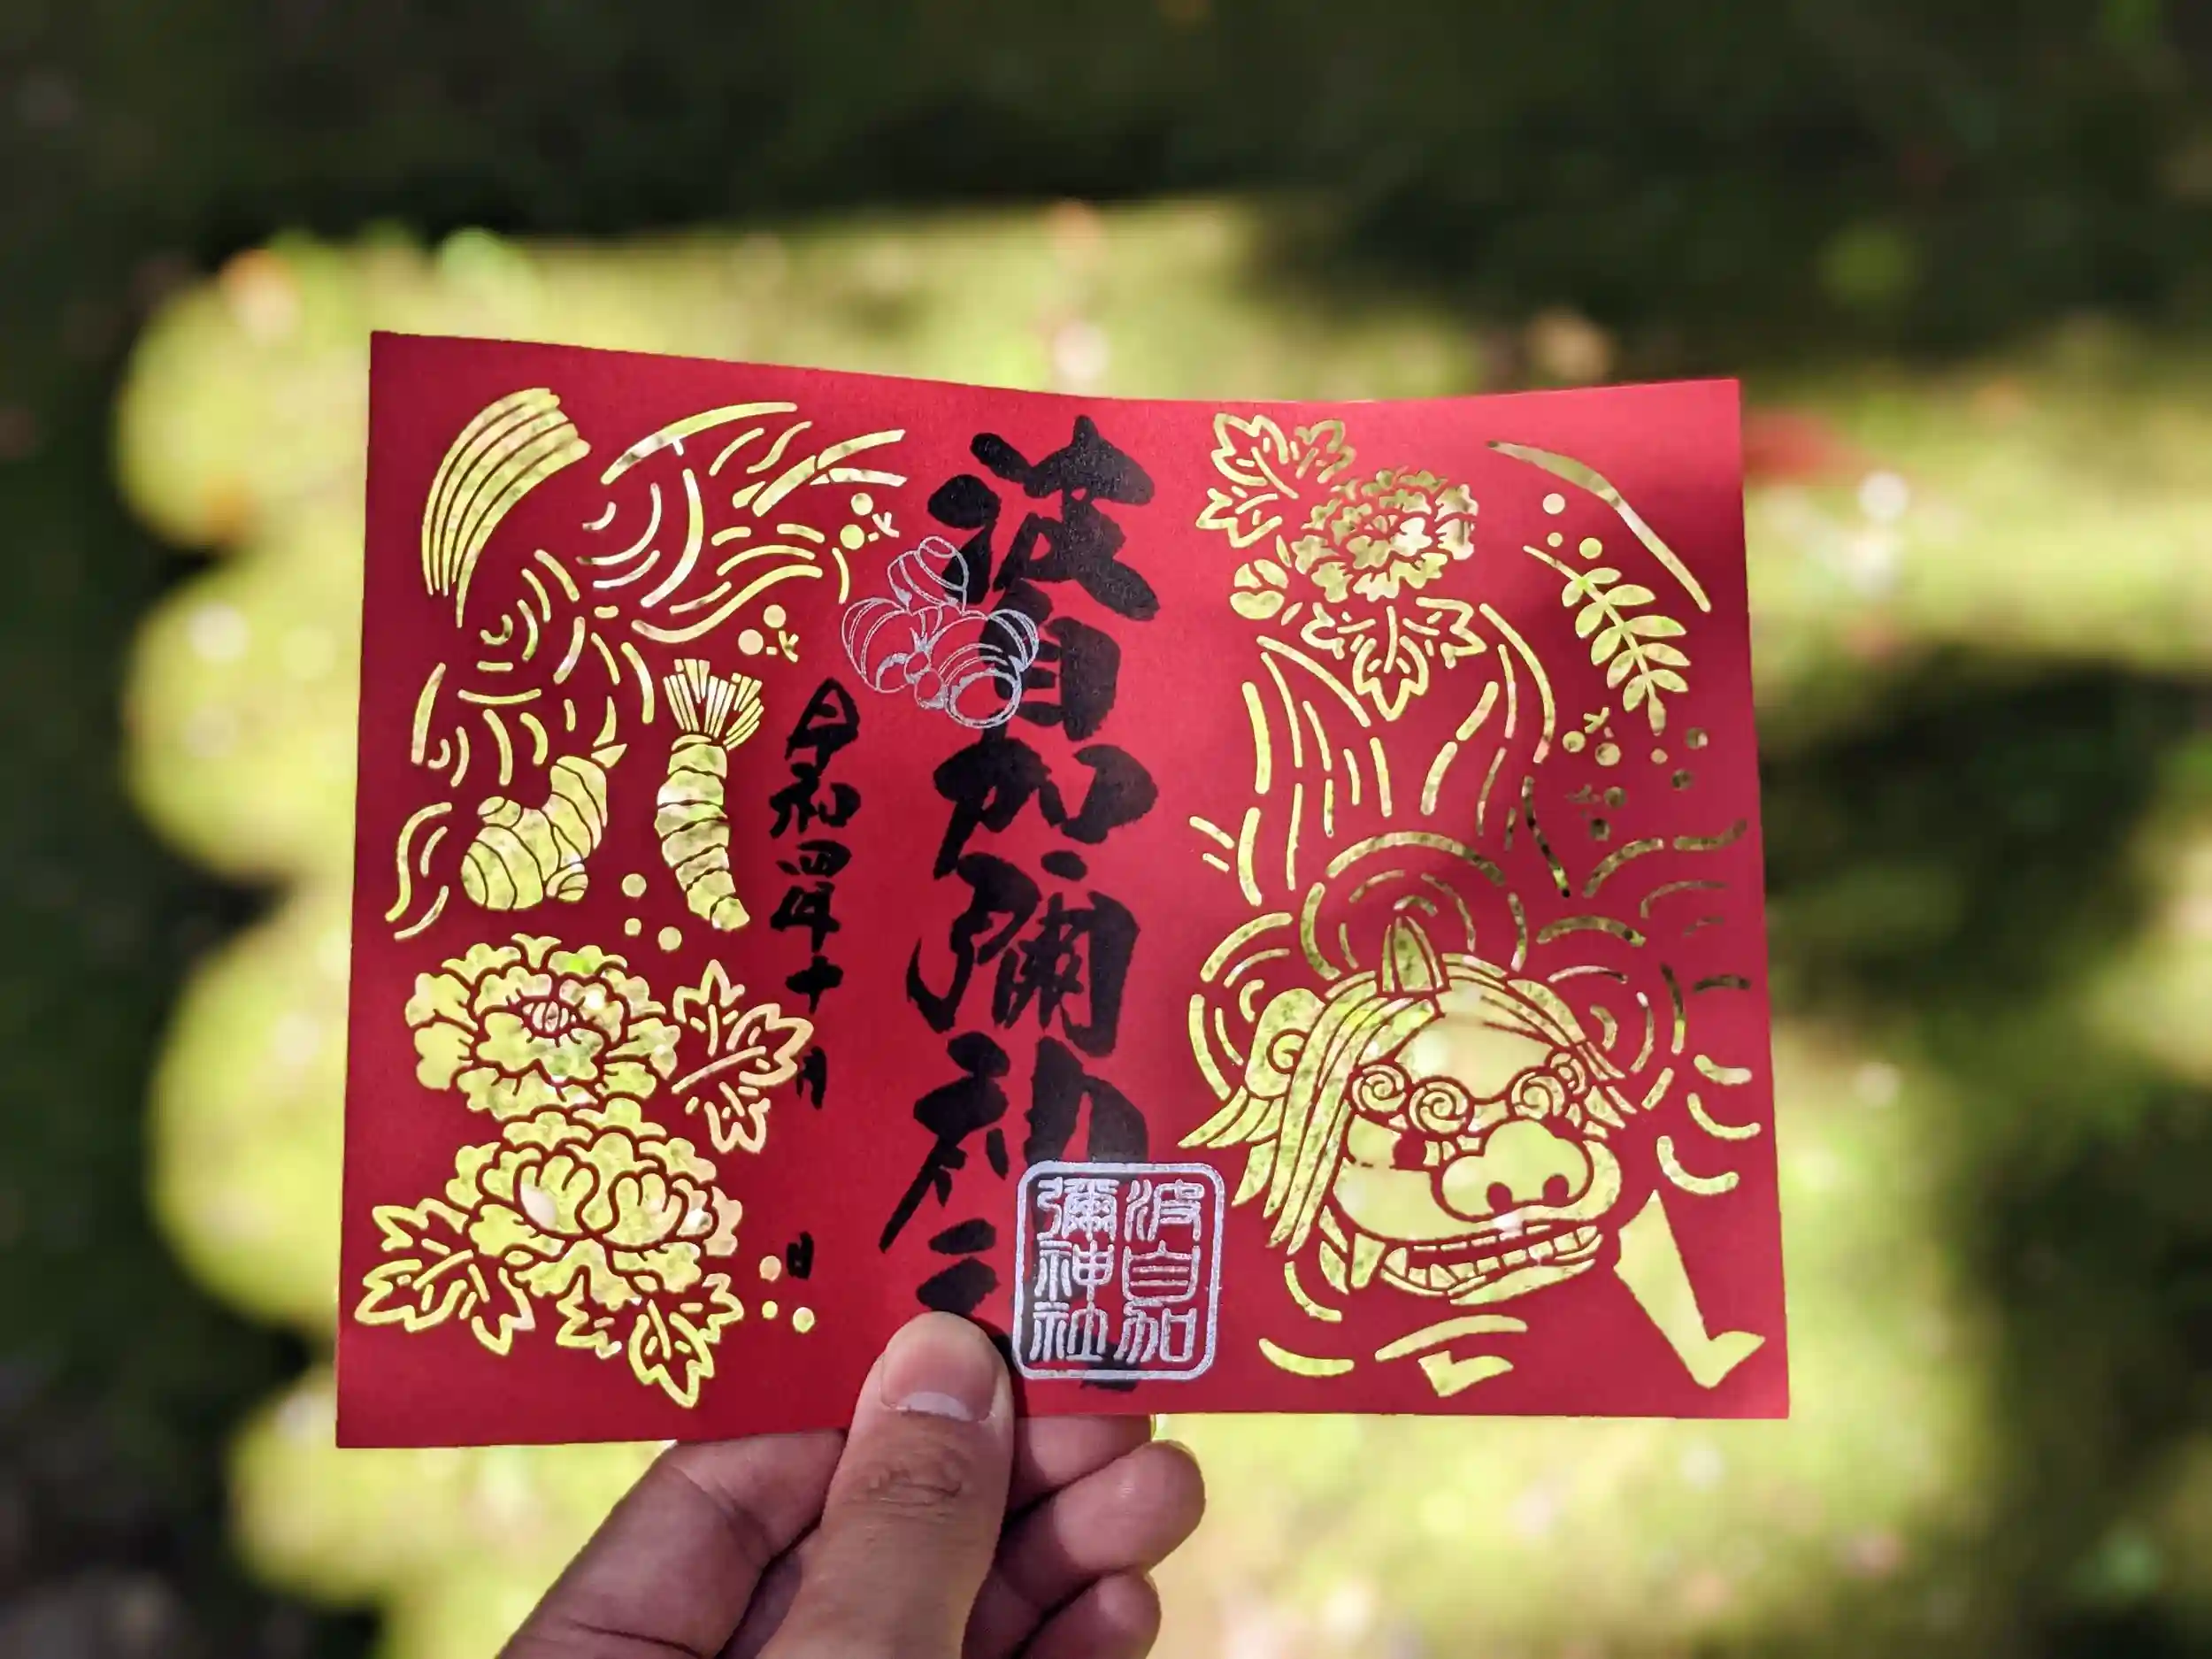 波自加彌神社
波自加
彌神社
令和四年十月
日